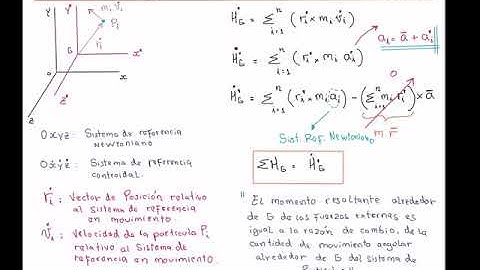 Y
Y'
m_i v_i'
P_i
r_i'
G
x'
O
x
z'
z
Oxyz : Sistema de referencia
Newtoniano
Ox'y'z' : Sistema de referencia
centroidal.
r_i' : Vector de Posición relativo
al sistema de referencia
en movimiento
v_i' : Velocidad de la partícula P_i
relativo al Sistema de
referencia en movimiento.
H'_G = Σ_{i=1}^{n} (r_i' × m_i v_i')
Ḣ'_G = Σ_{i=1}^{n} (r_i' × m_i a_i')
a_i = ā + a_i'
Ḣ'_G = Σ_{i=1}^{n} (r_i' × m_i a_i) - (Σ_{i=1}^{n} m_i r_i') × ā
0
m r̄'
Sist. Ref. Newtoniano
ΣM_G = Ḣ'_G
"
El momento resultante alrededor
de G de las fuerzas externas es
igual a la razón de cambio, de la
cantidad de movimiento angular
alrededor de G del sistema de